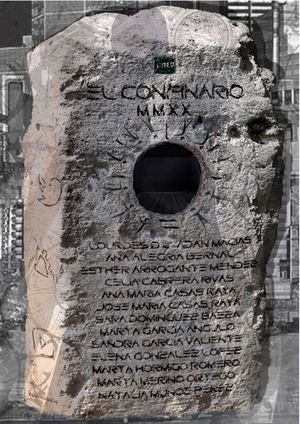 UNED
EL CONFINARIO
MMXX
LOURDES D. ADAN MACIAS
ANA ALEGRIA BERNAL
ESTHER ARROGANTE MENDEZ
CELIA CABRERA RIVAS
ANA MARIA CASAS RAYA
JOSE MARIA CASAS RAYA
SARA DOMINGUEZ BAEZA
MARTA GARCIA ANGULO
SANDRA GARCIA VALIENTE
ELENA GONZALEZ LOPEZ
MARTA HORMIGO ROMERO
MARTA MERINO ORTEGO
NATALIA MUÑOZ PEREZ